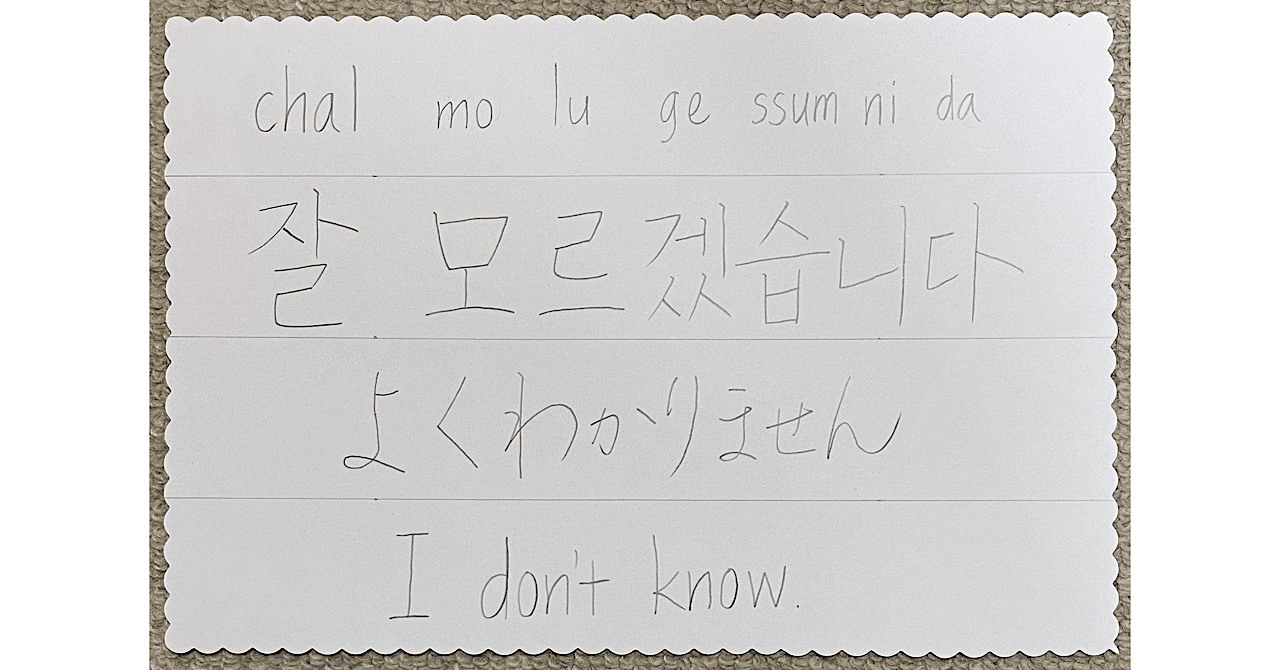 chal mo lu ge ssum ni da
잘 모르겠습니다
よくわかりません
I don't know.